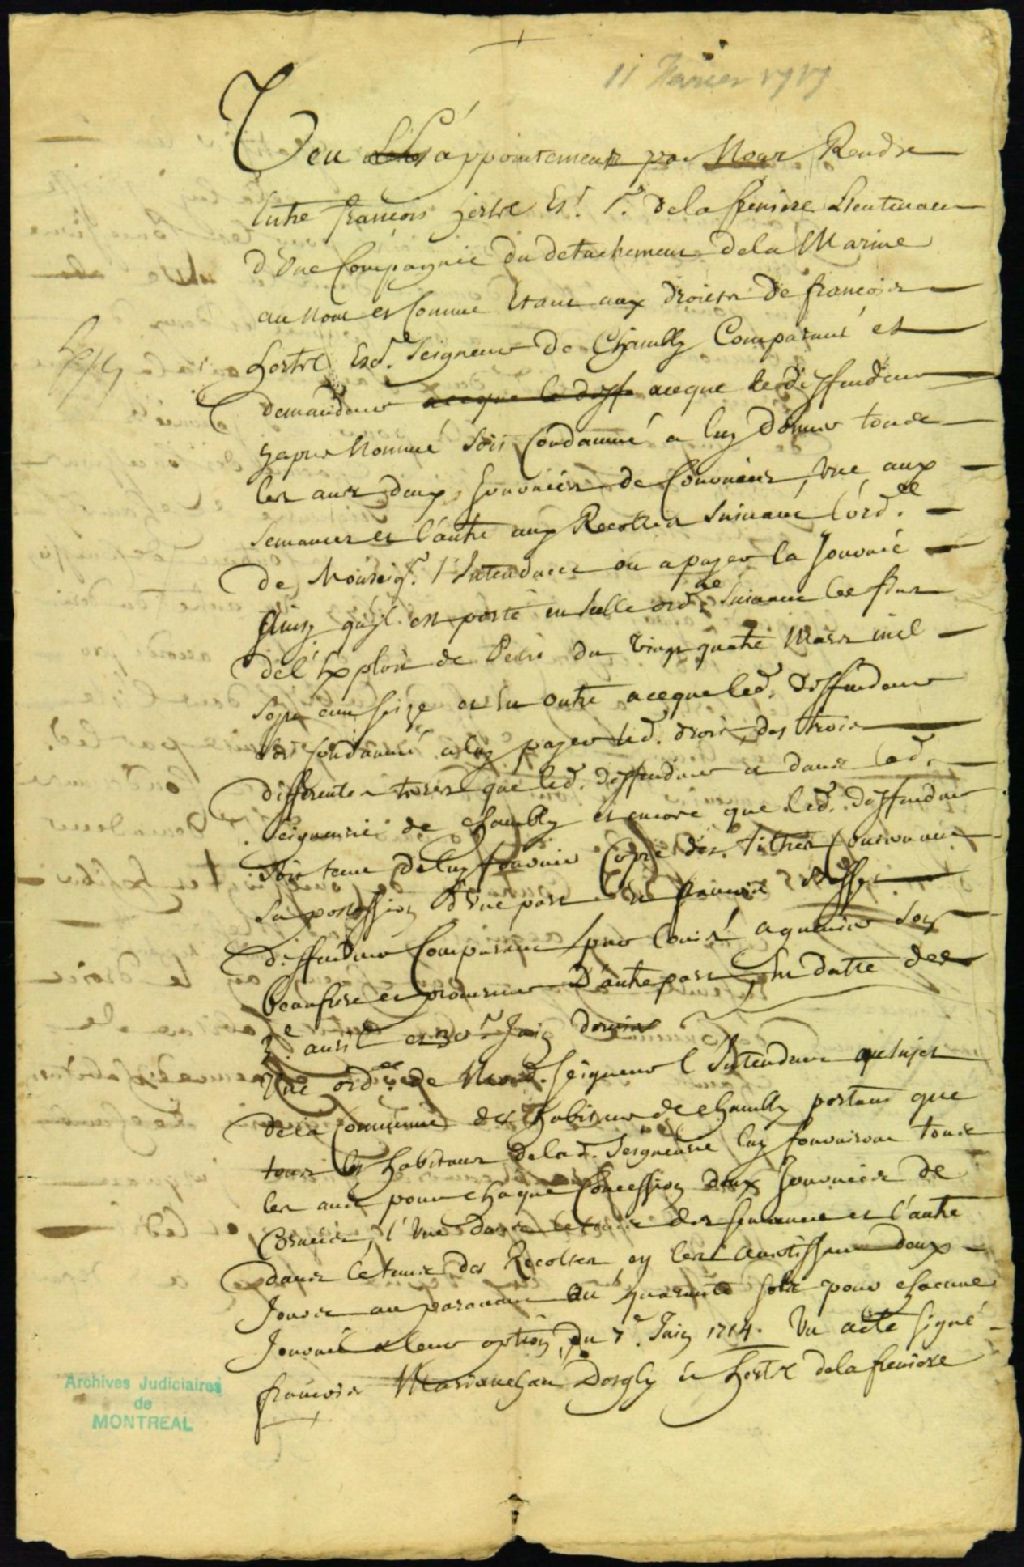 11 Fevrier 1717
Veu appointement par Nous Rendu
Entre françois hertel Es.r S.r de la freniere Lieutenant
d'Une Compagnie du detachement de la Marine
au nom et Comme Etant aux droicts de francois
hertel Esc.r Seigneur de Chambly Comparant et
demandeur aceque le deff aceque le deffendeur
yapres Nommé soit Condamné a luy donner tous
les ans deux Journées de Corvées, Une aux
semances et l'autre aux Recoltes suivant l'ord.ce
de Monseig.r l'Intendant ou a payer la Journée
Ainsy quil est porté en Icelle ord.ce suivant les fins
de l'Exploit de Petit du vingt quatre Mars mil
sept cent seize et En outre aceque led. deffendeur
soit Condamné a luy payer led. droit des trois
differentes terres que led. deffendeur a dans lad.
Seigneurie de Chambly et encore que led. deffendeur
soit tenu de luy fournir Copie des tiltres Concernant
sa possession d'Une part
deffendeur Comparant par Louis aguenier son
beaufrere et procureur D'autre part, En datte des
2.e avril et 30.e Juin dernier
Une ord.ce de Mond. Seigneur l'Intendant au sujet
de la Commune des habitans de Chambly portant que
tous les habitans de lad. Seigneurie luy fourniront tous
les ans pour chaque Concession deux Journées de
Corvées, l'Une dans le temps des semances et l'autre
dans le temps des Recoltes en les avertissant deux
Jours auparavant ou quarante sols pour chacune
Journée a leur option, du 7.e Juin 1714. Un acte signé
francois Mariauchau Desgly et hertel de la freniere
Archives Judiciaires
de
MONTREAL